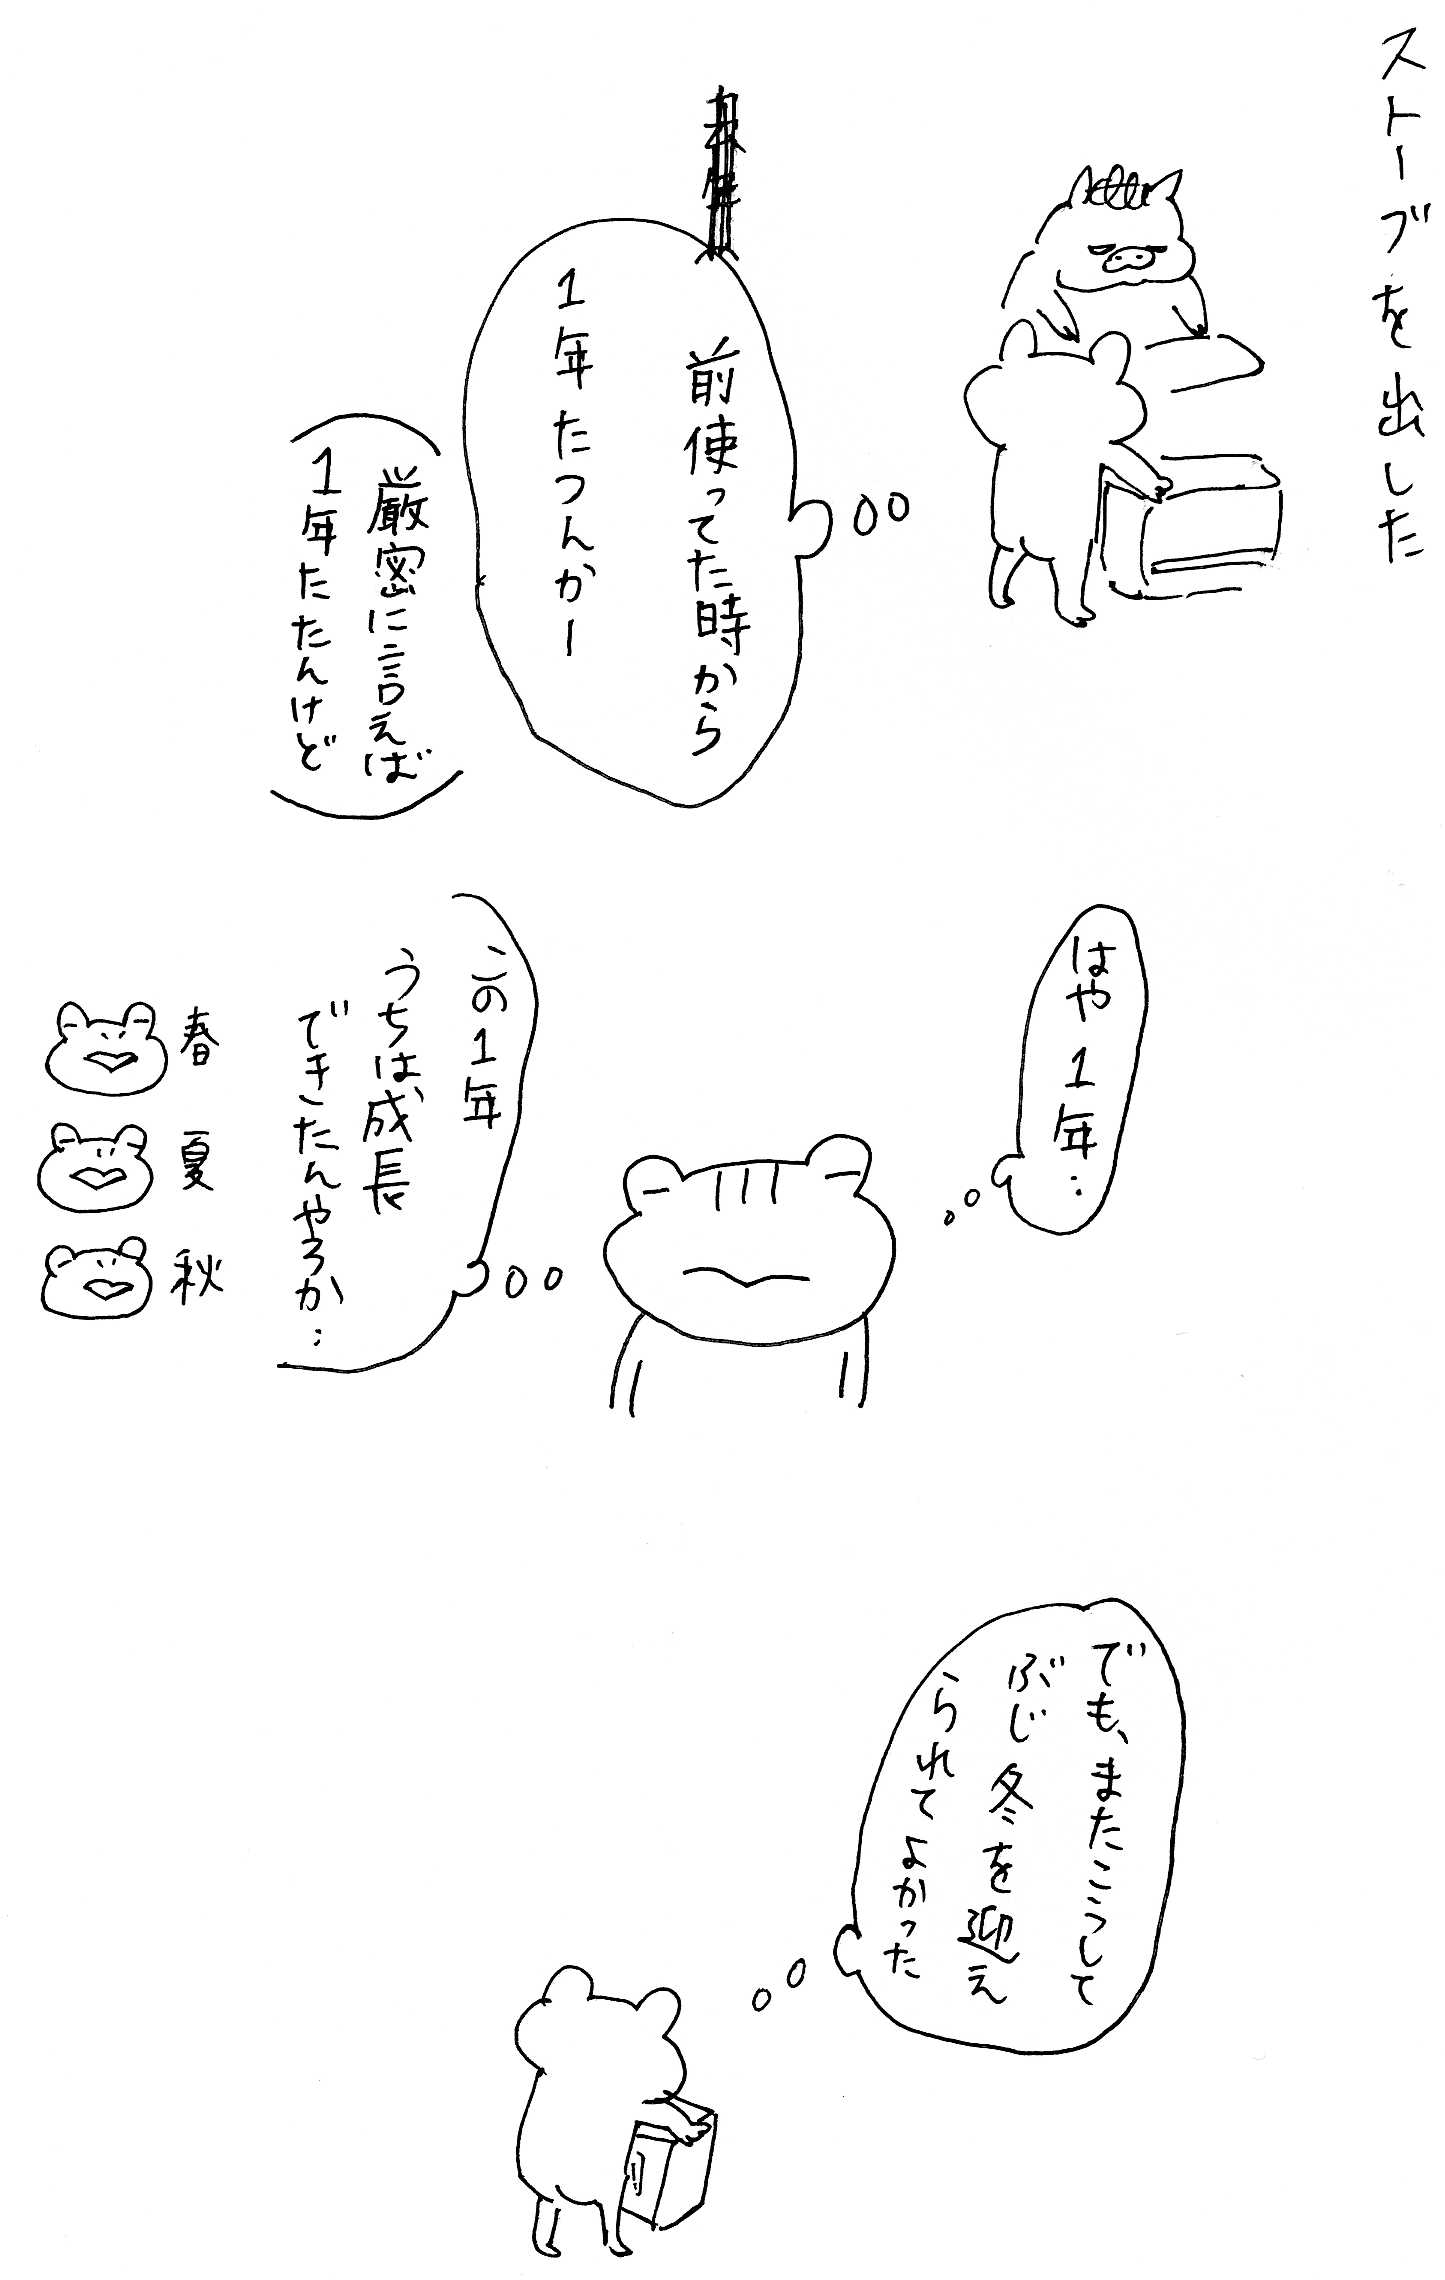 ストーブを出した
前使ってた時から
1年たつんかー
厳密に言えば
1年たたんけど
はや1年…
この1年
うちは成長
できたんやろか…
春
夏
秋
でも、またこうして
ぶじ冬を迎え
られてよかった